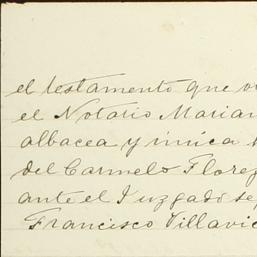 el testamento que
el Notario Marian
albacea y única
del Carmelo Florez
ante el Juzgado se
Francisco Villavic